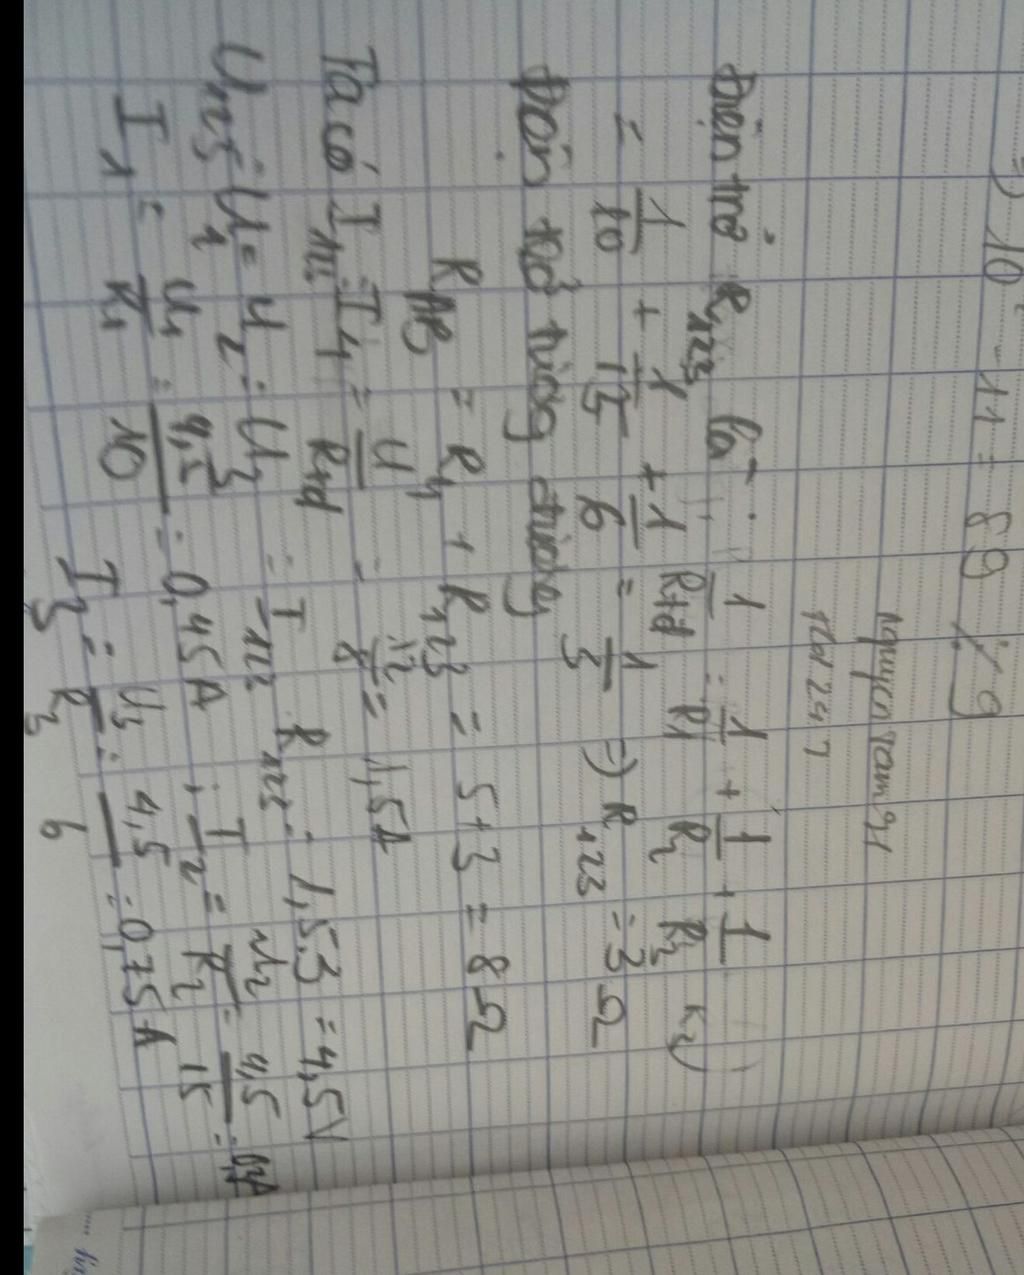 =) 10² - 11 = 89 % 9
nguyen tam 91
hld 247
Điện trở R₁₂₃ là : 1/Rtđ = 1/R1 + 1/R2 + 1/R3
= 1/10 + 1/15 + 1/6 = 1/3 =) R₁₂₃ = 3 Ω
Điện trở tương đương
R_AB = R4 + R₁₂₃ = 5+3 = 8 Ω
Ta có I₁₂₃ = I4 = U/Rtđ = 12/8 = 1,5A
U₁₂₃ = U₁ = U₂ = U₃ = I₁₂₃ . R₁₂₃ = 1,5.3 = 4,5V
I₁ = U1/R1 = 4,5/10 = 0,45A ; I₂ = U2/R2 = 4,5/15 = 0,3A
I₃ = U3/R3 = 4,5/6 = 0,75A